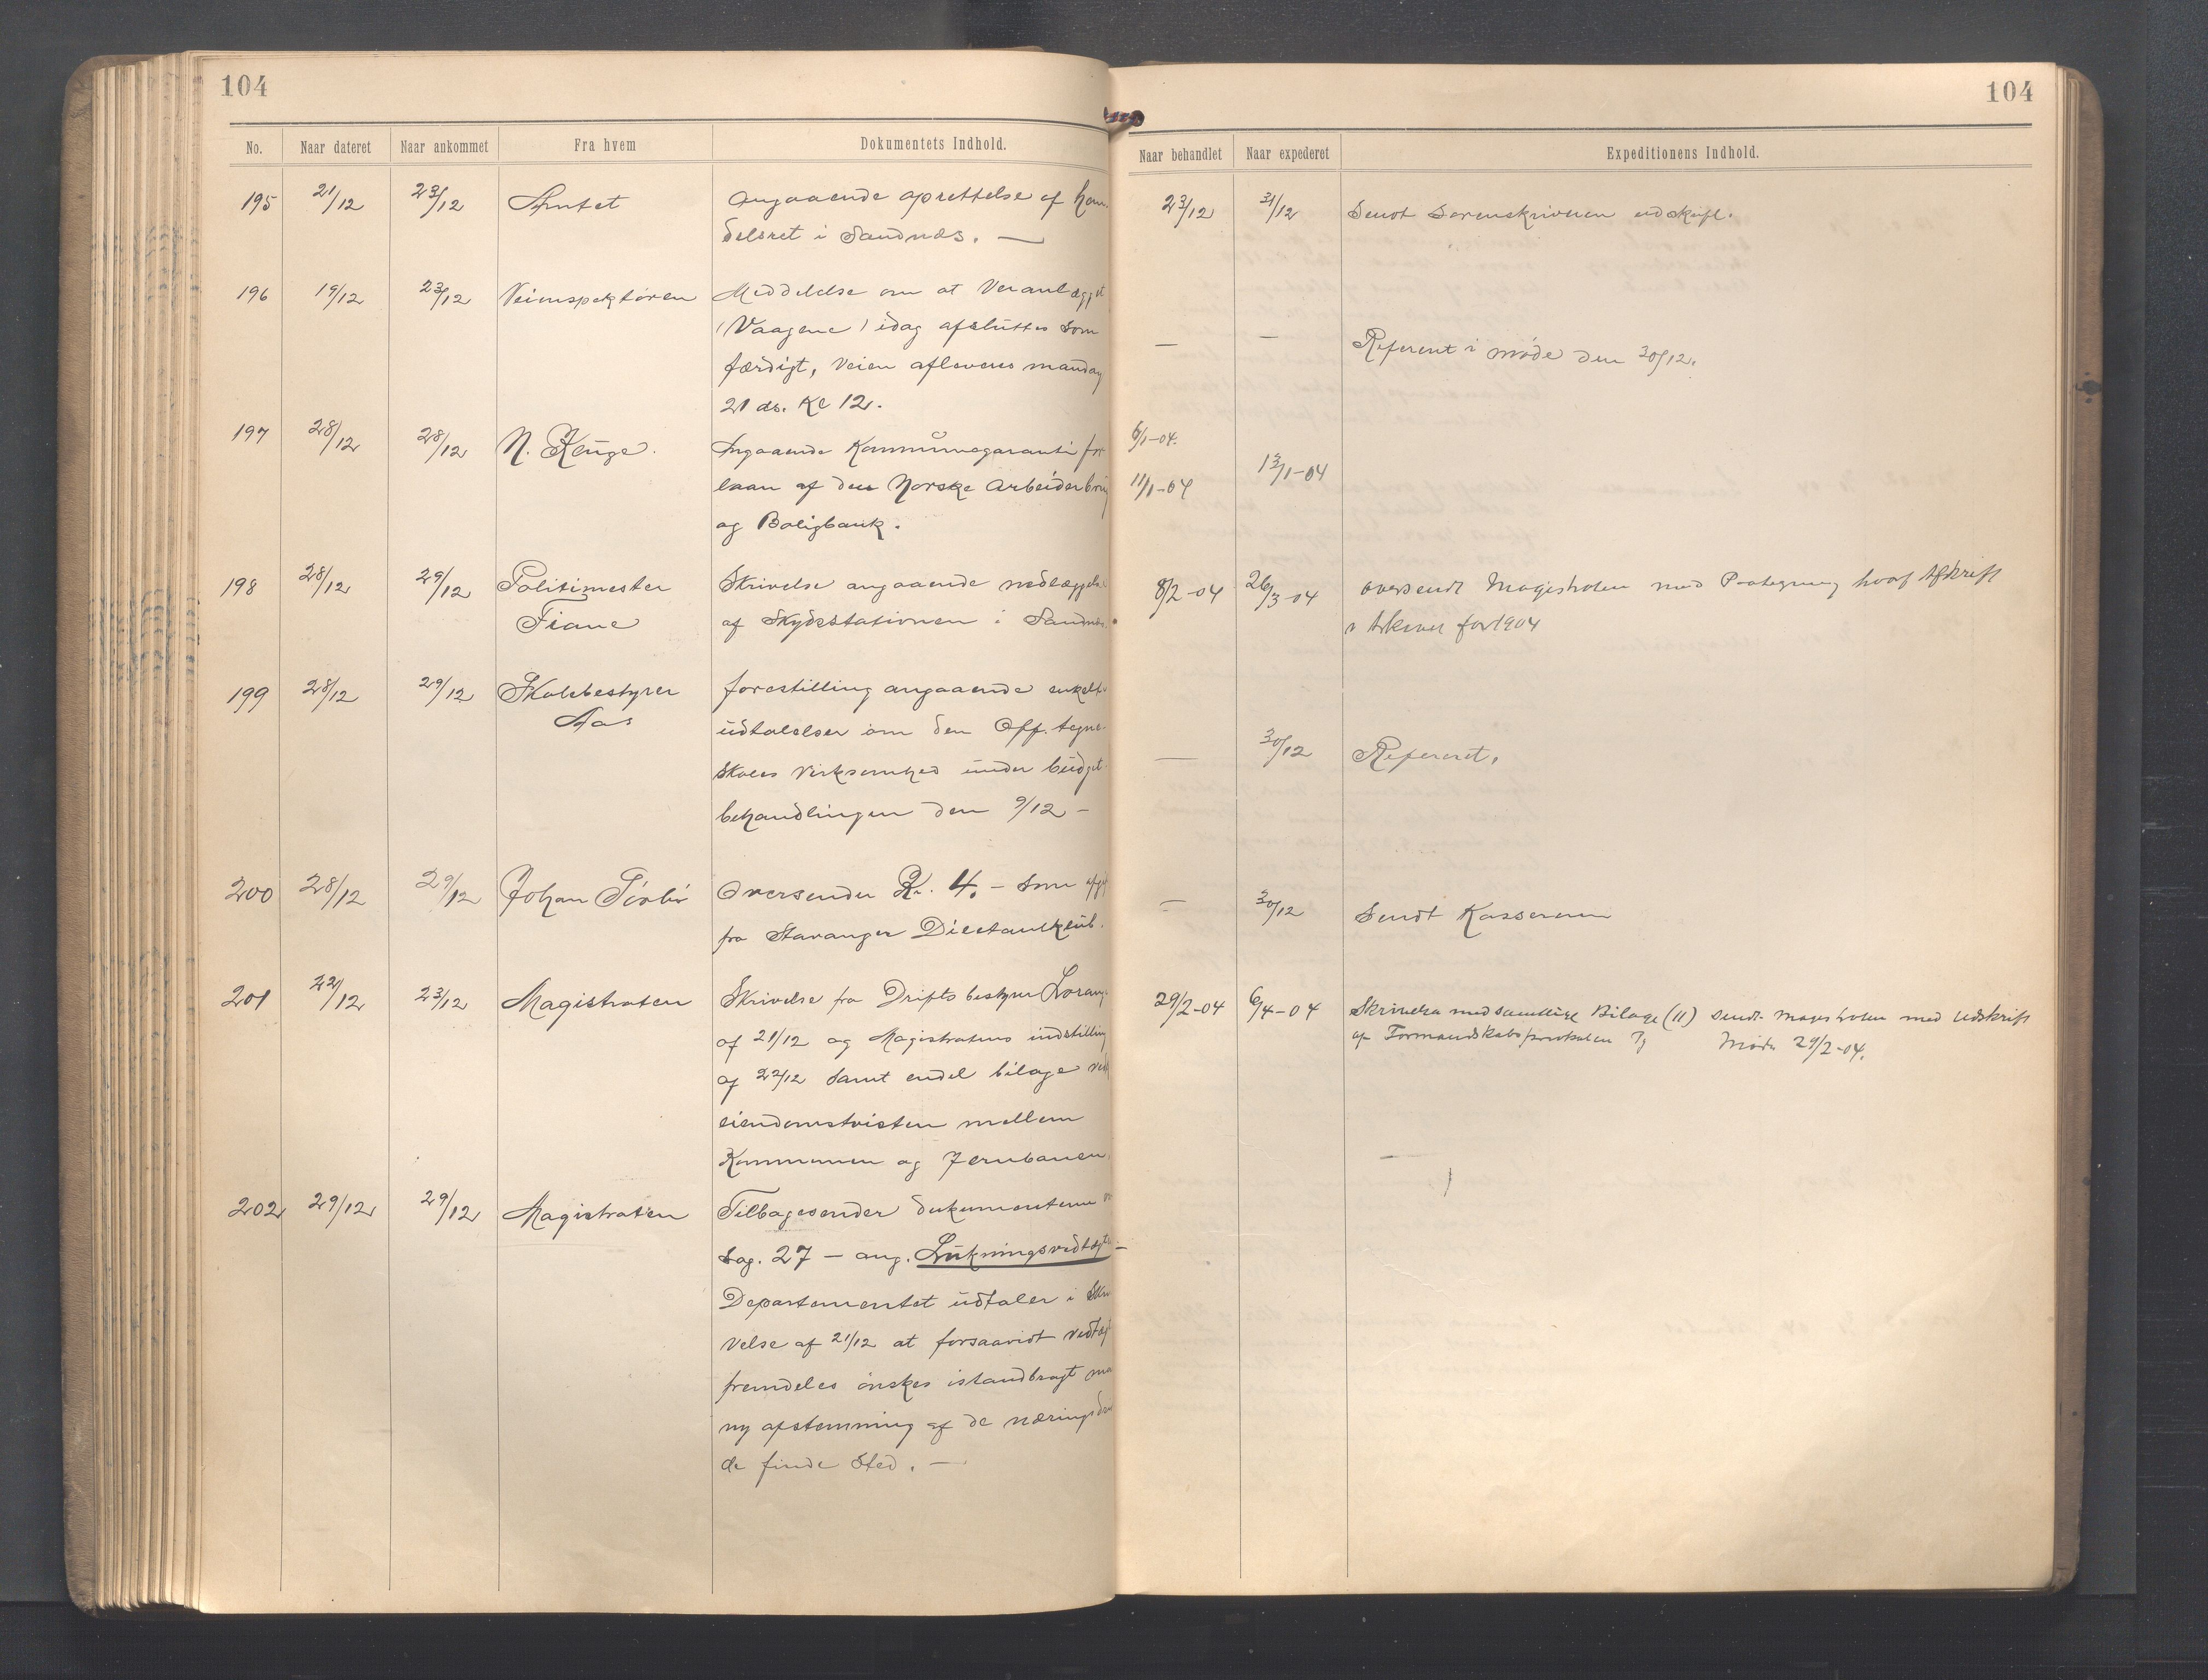 104
No. Naar dateret Naar ankommet Fra hvem Dokumentets Indhold.
195 21/12 23/12 Amtet angaaende oprettelse af han
delsret i Sandnæs. —
196 19/12 23/12 Veiinspektøren Meddelelse om at Veianlægget
(Vaagene) idag afsluttes som
færdigt, Veien afleveres mandag
21 ds. Kl 12.
197 28/12 28/12 N. Kluge. Angaaende Kommunegaranti for
laan af den Norske Arbeiderbrug
og Boligbank.
198 28/12 29/12 Politimester Skrivelse angaaende nedlæggelse
Fiane af Skydsstationen i Sandnæs.
199 28/12 29/12 Skolebestyrer forestilling angaaende enkelte
Aas udtalelser om den Off. tegne-
skoles virksomhed under budget
behandlingen den 9/12 —
200 28/12 29/12 Johan Oversender Kr. 4. – som
fra Stavanger
201 22/12 23/12 Magistraten Skrivelse fra Driftsbestyrer
af 21/12 og Magistratens indstilling
af 22/12 samt endel bilage ved
eiendomstvisten mellem
Kommunen og Jernbanen.
202 29/12 29/12 Magistraten Tilbagesender dokumenterne
Sag. 27 — ang. Lukningsvedtægt
Departementet udtaler i Skri
velse af 21/12 at forsaavidt vedtægt
fremdeles ønskes istandbragt maa
ny afstemning af de næringsdriven
de finde sted. —
104
Naar behandlet Naar expederet Expeditionens Indhold.
23/12 31/12 Sendt Sorenskriveren udskrift.
— — Referent i møde den 30/12.
6/1-04.
11/1-04 13/1-04
8/2-04 26/3-04 oversendt Magistraten med Paategning hvoraf Afskrift
i Arkivet for 1904
— 30/12 Refereret.
— 30/12 Sendt Kassereren
29/2-04 6/4-04 Skrivelse med samtlige Bilage (11) sendt Magistraten med Udskrift
af Formandskabsprotokolen Møde 29/2-04.